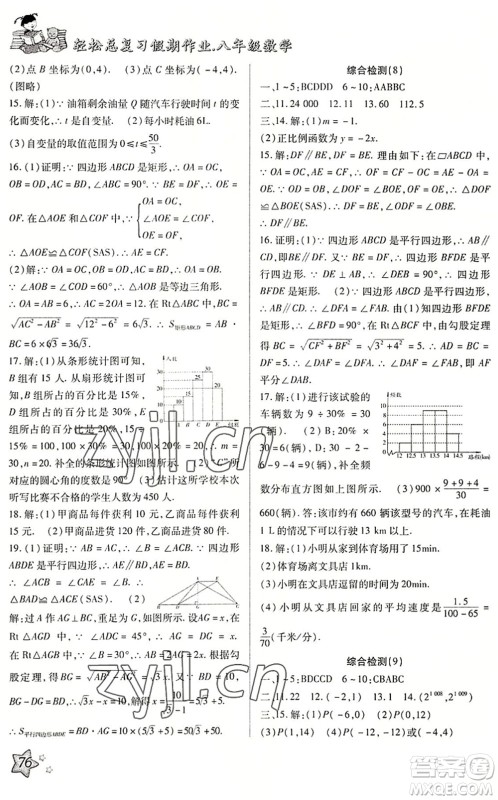 轻松总复习假期作业.八年级数学
(2)点 B 坐标为(0,4). (3)点 C 坐标为(-4,4).
(图略)
15.解:(1)∵ 油箱剩余油量 Q 随汽车行驶时间 t 的
变化而变化,∴ t 是自变量. (2)每小时耗油 6L.
(3)自变量的取值范围为 0≤t≤50/3.
16.(1)证明:∵ 四边形 ABCD 是矩形,∴ OA=OC,
OB=OD,AC=BD,∠ABC=90°. ∵ BE=DF,∴ OE
=OF. 在△AOE 和△COF 中, { OA=OC, ∠AOE=∠COF, OE=OF,
∴ △AOE≌△COF(SAS). ∴ AE=CF.
(2)解:∵ OA=OC,OB=OD,AC=BD,∴ OA=
OB. ∵ ∠AOB=60°,∴ △AOB 是等边三角形.
∴ OA=AB=6. ∴ AC=2OA=12. 在 Rt△ABC 中,BC=
√AC²-AB²=√12²-6²=6√3,∴ S矩形ABCD=AB·
BC=6×6√3=36√3.
17.解:(1)从条形统计图可知,
B 组有 15 人. 从扇形统计图可
知,B 组所占的百分比是 15%,
D 组所占的百分比是 30%,E
组所占的百分比是 20%,15÷
15%=100,100×30%=30,100×20%=20,∴ m=
30,n=20. 补全的条形统计图如图所示. (2)“C 组”
所对应的圆心角的度数是 90° (3)估计这所学校本次
听写比赛不合格的学生人数为 450 人.
18.解:(1)甲商品每件进货 10 元,乙商品每件进货
15 元. (2)甲商品进货 120 件,乙商品进货 80 件.
19.(1)证明:∵ AB=AC,∴ ∠ABC=∠C. ∵ 四边形
ABDE 是平行四边形,∴ BD∥AE,
BD=AE. ∴ ∠ABC=∠BAE. ∴ ∠C
=∠BAE. 又∵ AB=CA,AE=CD,∴
△BAE≌△ACD(SAS).
(2)解:过点 A 作 AG⊥BC,垂足为 G. 设 AG=x. 在
Rt△AGD 中,∵ ∠ADC=45°,∴ AG=DG=x. 在
Rt△AGB 中,∵ ∠B=30°,∴ AB=2AG=2x. 根据勾
股定理,得 BG=√AB²-AG²=√3x. ∵ BD=10,
BG-DG=BD,∴ √3x-x=10,解得 AG=x=10/(√3-1)=5√3+5.
∴ S平行四边形ABDE=BD·AG=10×(5√3+5)=50√3+50.
76
综合检测(8)
一、1~5:BCDDD 6~10:AABBC
二、11.24 000 12.41 13.60 14.2
三、14.解:(1)k=-2.
(2)正比例函数为 y=-2x.
15.解:DF∥BE,DF=BE. 理由如下:在▱ABCD
中,OA=OC,OB=OD. ∵ AF=CE,∴ OF=OE.
在△DOF 与△BOE 中,OD=OB,∠DOF=∠BOE,
∴ △DOF≌△BOE. ∴ DF=BE,∠ODF=∠OBE.
∴ DF∥BE.
16.证明:(1)∵ 四边形 ABCD 是平行四边形,∴ AB∥
CD. ∴ BE∥DF. ∵ BE=DF,∴ 四边形 BFDE 是平行
四边形. ∵ DE⊥AB,∴ ∠DEB=90°. ∴ 四边形
BFDE 是矩形.
(2)∵ 四边形 BFDE 是矩形,∴ ∠BFD=90°. ∴
∠BFC=90°. 在 Rt△BCF 中,由勾股定理
得 BC=√CF²+BF²=√3²+4²=5. ∴ AD=BC=
DF=5. ∴ ∠DAF=∠DFA. ∵ AB∥
DC,∴ ∠DFA=∠FAB. ∴ ∠DAF=∠FAB,即 AF
平分∠DAB.
17.解:(1)进行该试验的
车辆数为 9÷30%=30
(辆). (2)B:20%×
30=6(辆),D:30-2-6-
9-9-4=
数分布直方图如图所示. (3)900×(9+9+4)/30=
660(辆). 答:该市约有 660 辆该型号的汽车,在耗油
1 L 的情况下可行驶 13 km以上.
18.解:(1)小明从家到体育场用了 15min.
(2)体育场离文具店 1km.
(3)小明在文具店逗留的时间为20min.
(4)小明从文具店回家的平均速度是1.5/(100-65)=
3/70(千米/分).
综合检测(9)
一、1~5:BDCCD 6~10:CBABC
二、11.22 12.y=13-x 13.±4 14.(2^1 008,2^1 009)
三、15.解:(1)P(-6,0) (2)P(-12,-3)
(3)P(1,-4)